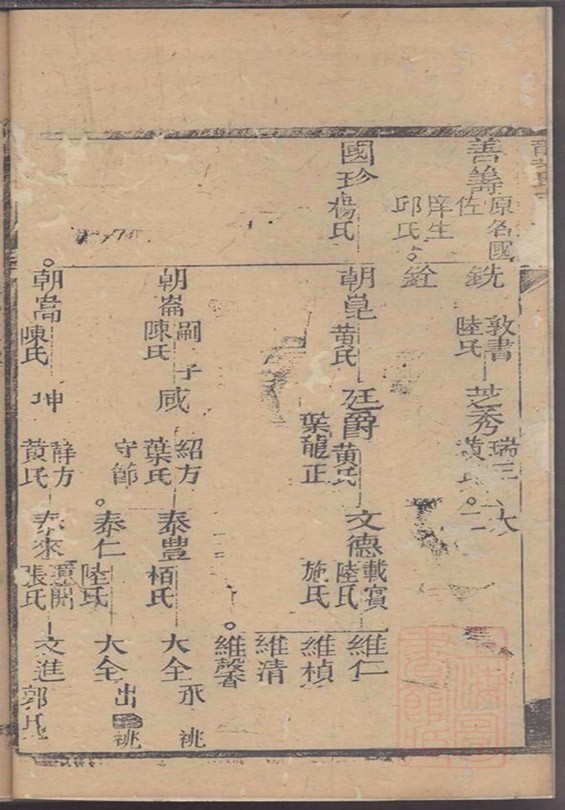 善籌
原名國
佐
庠生
邱氏
銑
敦書
陸氏
芝秀
瑞三
黃氏
銓
國珍
楊氏
朝崑
黃氏
廷爵
黃氏
葉龍正
文德
載賓
陸氏
施氏
維仁
維楨
維清
維馨
朝崙
陳氏
嗣子
咸
紹方
葉氏
守節
泰豊
栢氏
大全
承祧
泰仁
陸氏
大全
出
祧
朝嵩
陳氏
坤
静方
黃氏
泰來
張氏
文進
郭氏